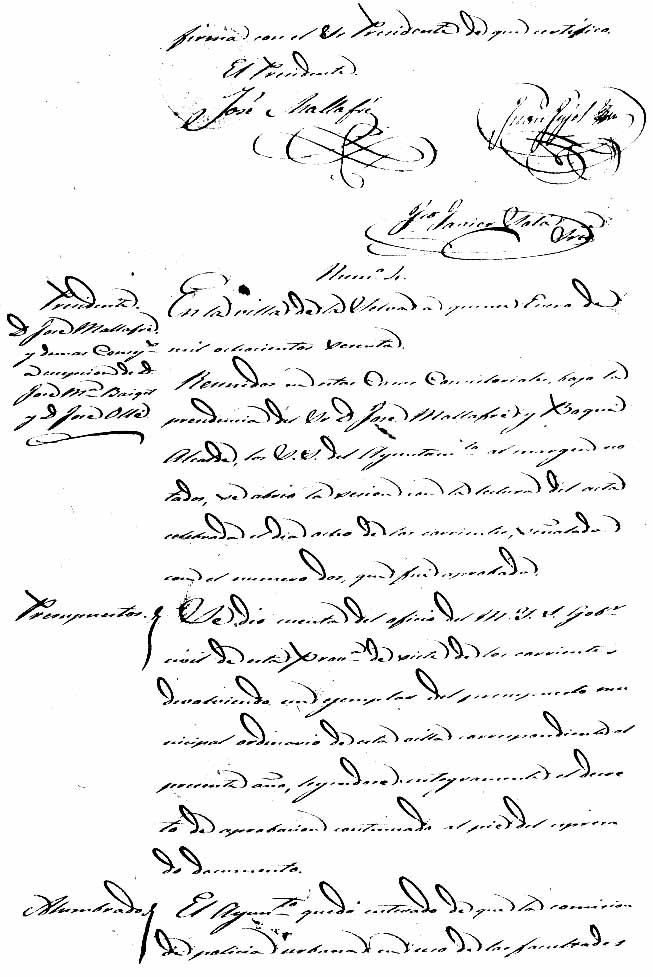 firma con el Sr Presidente de que certifico.
El Presidente.
José Mallafré
Juan Pujol
Franco Xavier Salas
Srio
Num.º 4.
Presidente.
D José Mallafré
y demas Concej.s
a escepcion de d
José M.a Baiget
y d José Ollé
En la villa de la Selva a quince Enero de
mil ochocientos sesenta.
Reunidos en estas Casas Consistoriales, bajo la
presidencia del Sr D José Mallafré y Boqué
Alcalde, los S.S. del Ayuntam.to al margen no
tados, se abrió la sesion con la lectura del acta
celebrada el dia ocho de los corrientes, señalada
con el numero dos, que fué aprobada.
Presupuestos.
Se dió cuenta del oficio del M. I. S. Gob.r
civil de esta Prov.a de siete de los corrientes
devolviendo un ejemplar del presupuesto mu
nicipal ordinario de esta villa correspondiente al
presente año, leyendose integramente el decre
to de aprobacion continuado al pie del espresa
do documento.
Alumbrado
El Ayun.to quedó enterado de que la comision
de policia urbana en uso de las facultades